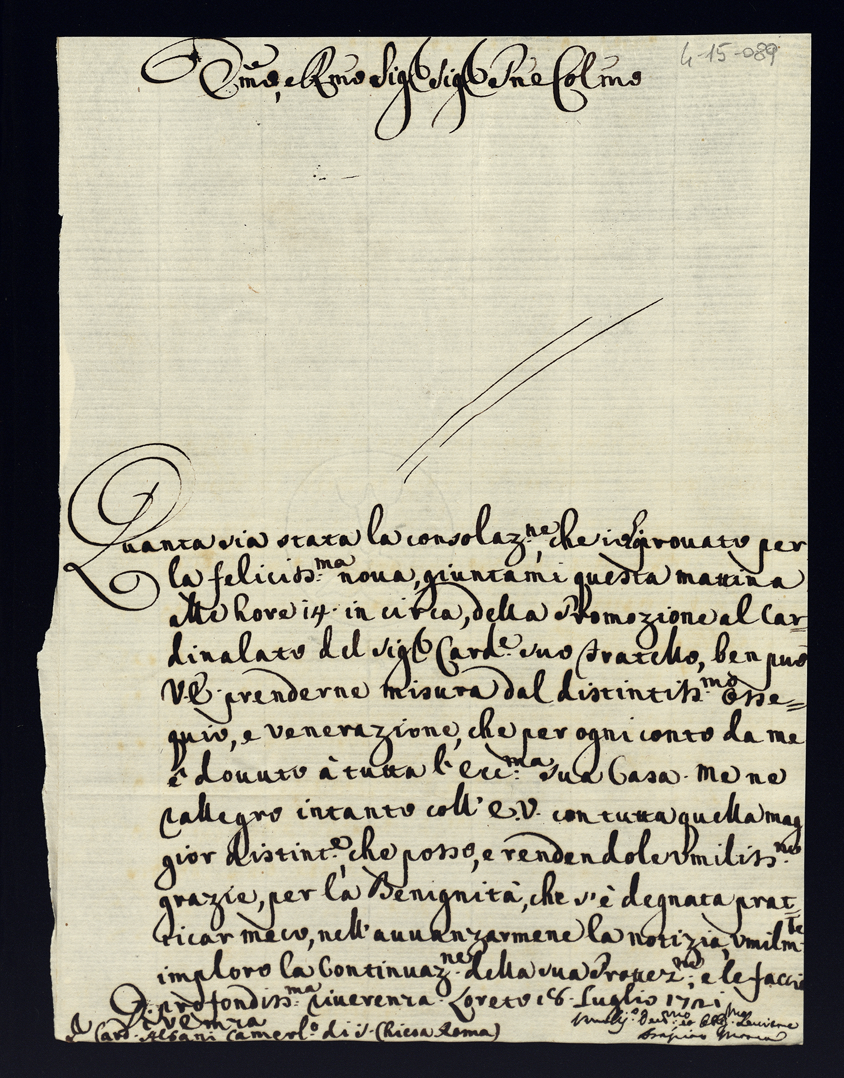 4-15-089
Emo, e Rmo Sigr Sigr Pne Colmo
Quanta sia stata la consolaz.ne, che io ho prouato per
la felicits.ma noua, giuntami questa mattina
alle hore 14. in circa, della Promozione al Car=
dinalato del Sigr Card.e suo Fratello, ben può
V.E. prenderne misura dal distintiss.mo osse=
quio, e venerazione, che per ogni conto da me
è douuto à tutta l'ecc.ma sua Casa. Me ne
rallegro intanto coll'E.V. con tutta quella mag
gior distint.e, che posso, e rendendole vmiliss.me
grazie, per la Benignità, che s'è degnata prat=
ticar meco, nell'auuanzarmene la notizia, vmilm.te
imploro la Continuaz.ne della sua Protez.ne, e le faccio
profondiss.ma riuerenza. Loreto 18. Luglio 1721
Di V. Emza
Card. Albani Camerl.o di S. Chiesa Roma)